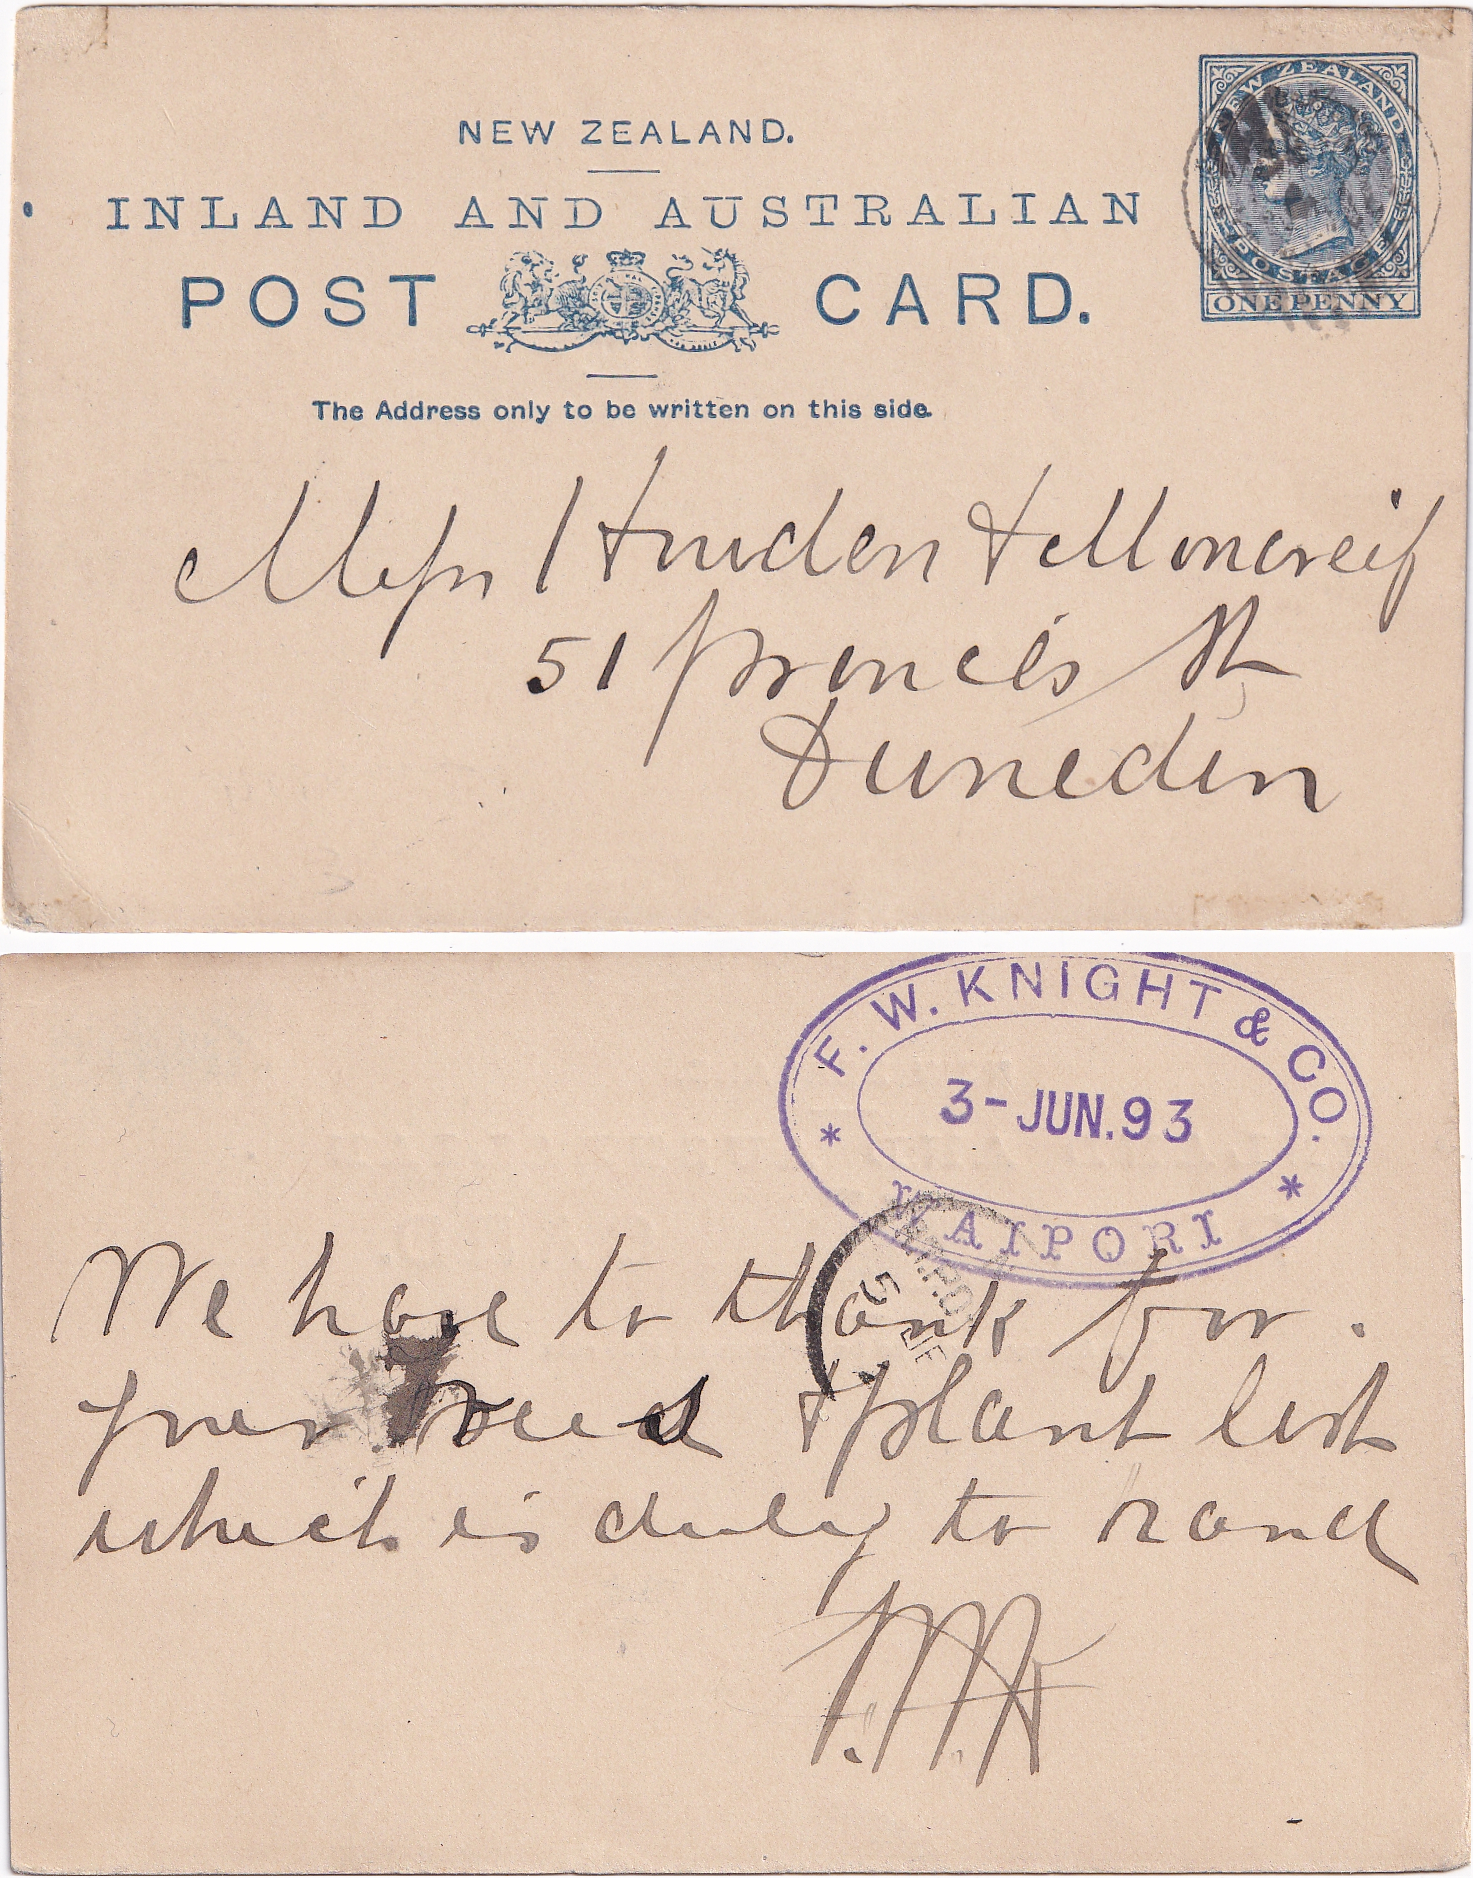 NEW ZEALAND.
INLAND AND AUSTRALIAN
POST CARD.
NEW ZEALAND
POSTAGE
ONE PENNY
The Address only to be written on this side.
Messrs Howden & Moncreif
51 Princes St
Dunedin
F. W. KNIGHT & CO.
3-JUN.93
WAIPORI
We have to thank for
your seed & plant list
which is duly to hand